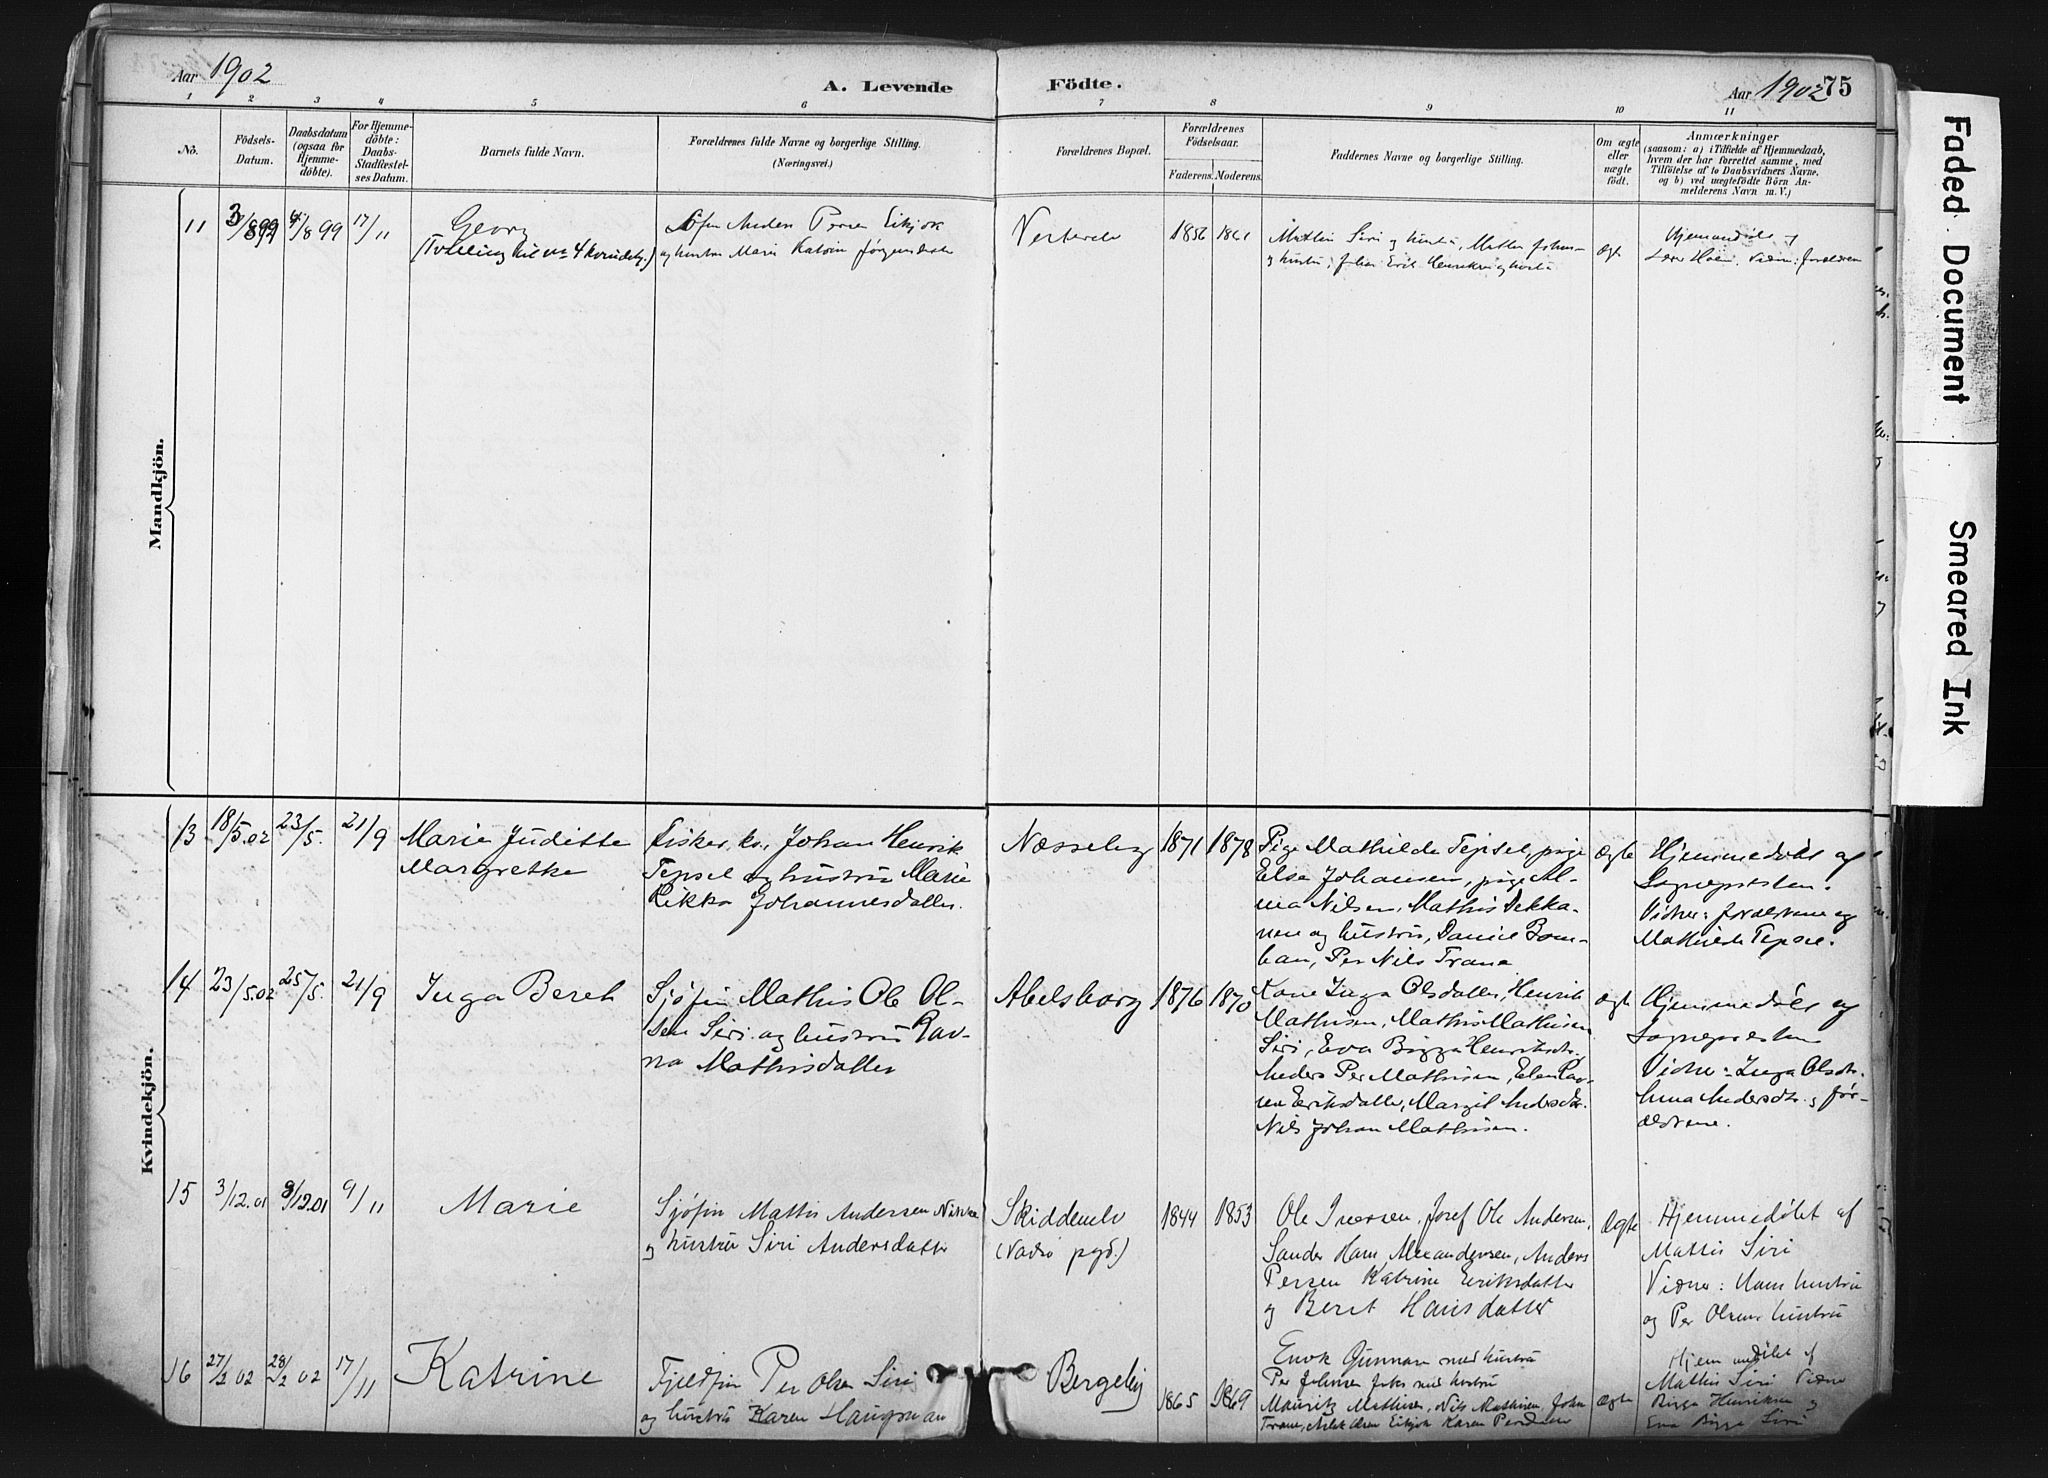 Aar 1902
A. Levende
Födte.
Aar 1902
75
1 2 3 4 5 6 7 8 9 10 11
No.
Födsels-
Datum.
Daabsdatum
(ogsaa for
Hjemme-
döbte).
For Hjemme-
döbte:
Daabs-
Stadfæstel-
ses Datum.
Barnets fulde Navn.
Forældrenes fulde Navne og borgerlige Stilling.
(Næringsvei.)
Forældrenes Bopæl.
Forældrenes
Födselsaar.
Faderens. Moderens.
Faddernes Navne og borgerlige Stilling.
Om ægte
eller
uægte
født.
Anmærkninger
(saasom: a) i Tilfælde af Hjemmedaab,
hvem der har forrettet samme, med
Tilföielse af to Daabsvidners Navne,
og b) ved uægtefödte Börn An-
melderens Navn m. V.)
Mandkjön.
11
/8 99
17/11
Georg
(Tvilling til no 4 kvindekj.)
Anders Persen Eikjok
og hustru Marie Katrin Jørgensdatter
1856
og hustru, Johan Erik Henriksen og hustru
ægte
Vidner: forældrene
Kvindekjön.
13
18/5.02
23/5.
21/9
Marie Juditte
Margrethe
Fisker, kv., Johan Henrik
Tepsel og hustru Marie
Rikka Johannesdatter.
Næsseby
1871
1878
Pige Mathilde Tepsel, pige
Else Johansen, pige Al-
ma Nilsen, Mathis Dekka-
nen og hustru, Daniel Bom-
ban, Per Nils Trane
Ægte
Hjemmedøbt af
Sognepresten.
Vidner: forældrene og
Mathilde Tepsel.
14
23/5.02
25/5.
21/9
Inga Beret
Sjøfin Mathis Ole Ol-
sen Siri og hustru Rav-
na Mathisdatter
Abelsborg
1876
1870
Kone Inga Olsdatter, Henrik
Mathisen, Mathis Mathisen
Siri, Eva Bigga Henriksdtr.
Anders Per Mathisen, Elen Rav-
na Eriksdatter, Margit Andersdtr.
Nils Johan Mathisen.
ægte
Hjemmedøbt af
Sognepresten
Vidner: Inga Olsdtr.
Anna Andersdtr. og for-
ældrene.
15
3/12.01
8/12.01
9/11
Marie
Sjøfin Mattis Andersen
og hustru Siri Andersdatter
Skiddenelv
(Vadsø pgd.)
1844
1853
Ole Iversen, Josef Ole Andersen,
Sander Hans Alexandersen, Anders
Persen Katrine Eriksdatter
og Beret Hansdatter
Ægte
Hjemmedøbt af
Mattis Siri
Vidner: Hans hustru
og Per Olsens hustru
16
27/2 02
28/2 02
17/11
Katrine
Fjeldfin Per Olsen Siri
og hustru Karen
Bergeby
1865
1869
Enok Gunnari med hustru
Per Johnsen med hustru
Mauritz Mathisen, Nils Mathisen, John
Trane, Eikjok Karen Persdatter
Ægte
Hjemmedøbt af
Mathis Siri Vidner
Bigga Henriksen og
Eva Bigga Siri
Faded Document
Smeared Ink